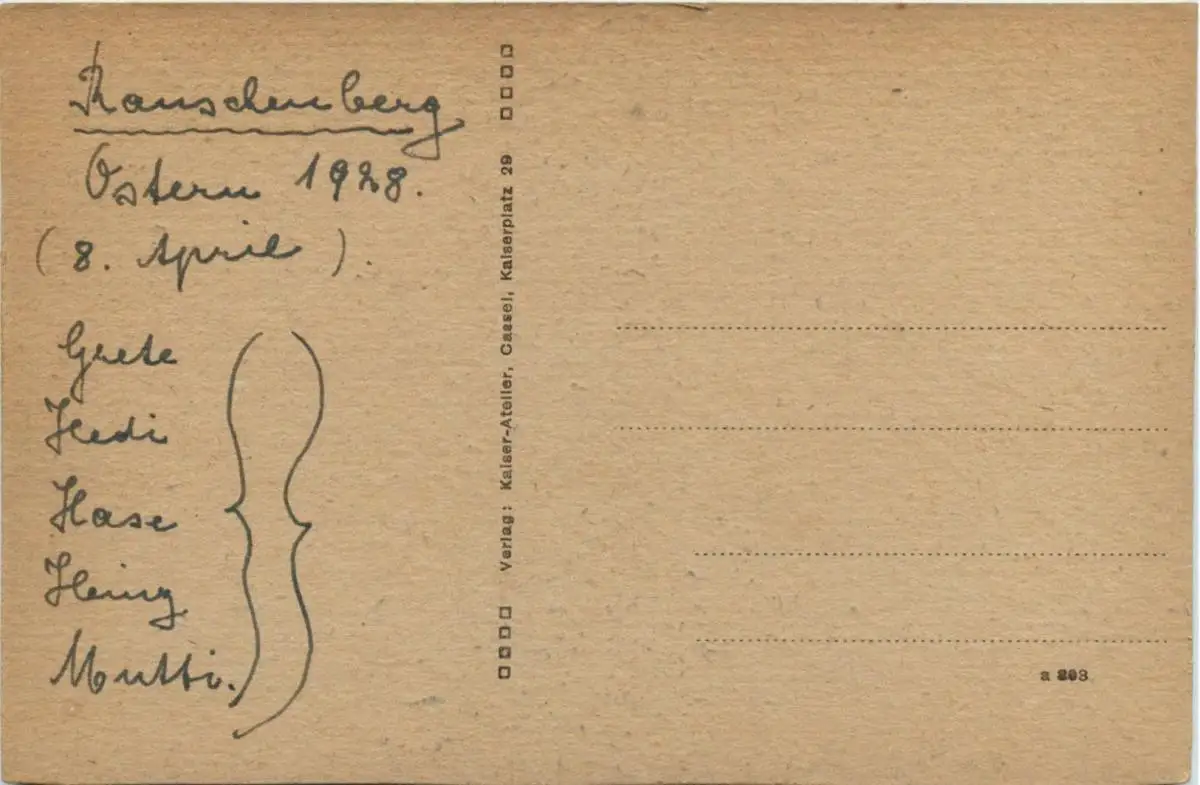 Rauschenberg
Ostern 1928.
(8. April).
Grete
Hedi
Hase
Heinz
Mutti.
Verlag: Kaiser-Atelier, Cassel, Kaiserplatz 29
a